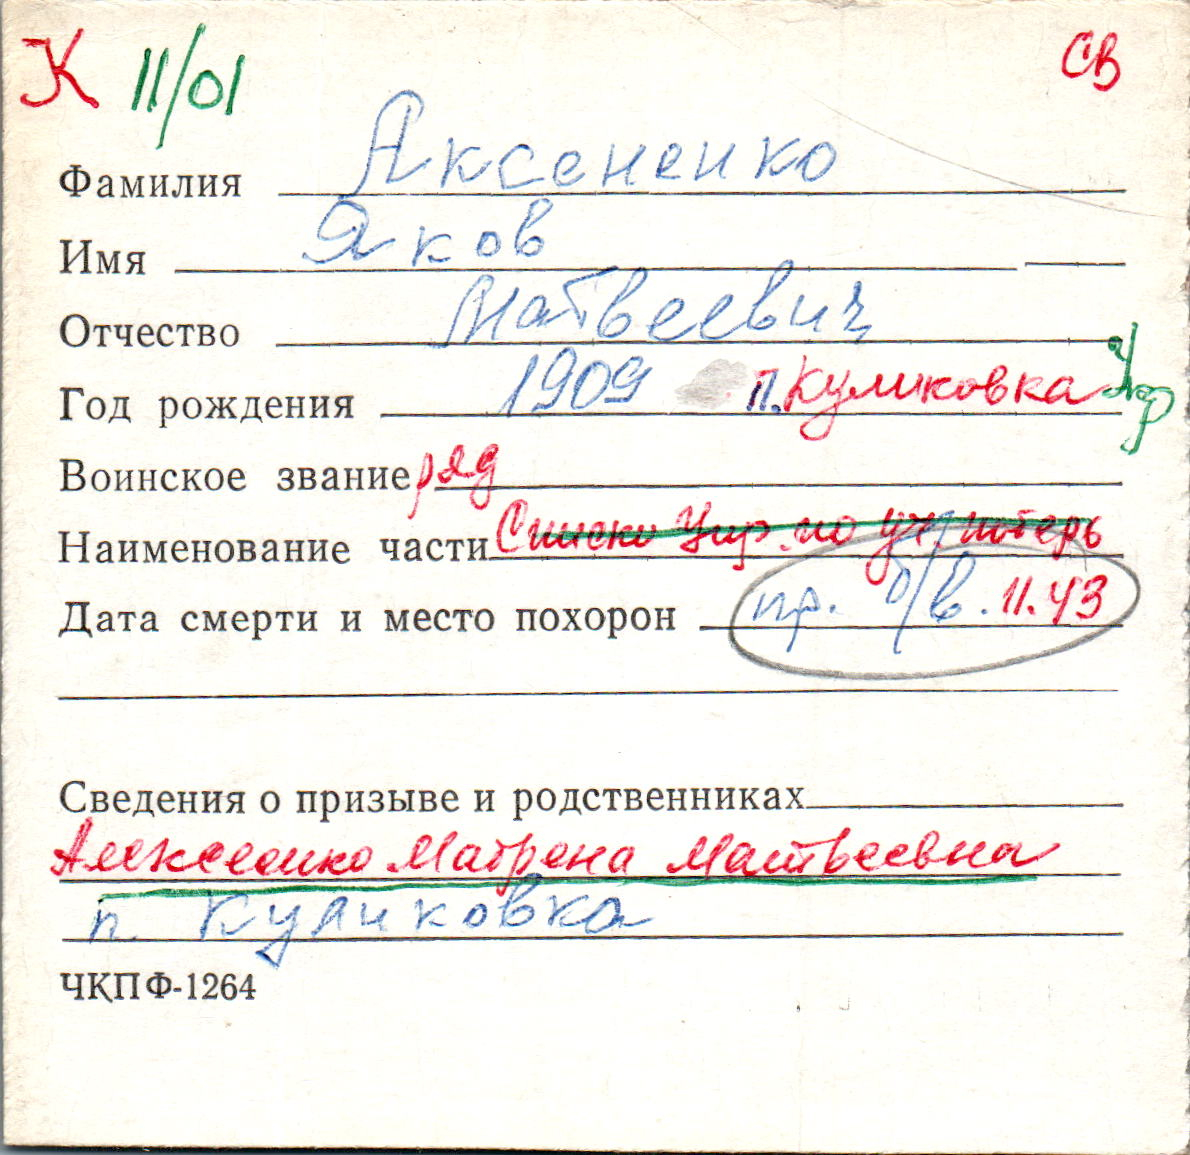 К 11/01 СВ
Фамилия Аксененко
Имя Яков
Отчество Матвеевич
Год рождения 1909 п. Куликовка
Воинское звание ряд
Наименование части Списки Упр. по уч. потерь
Дата смерти и место похорон пр. б/в. 11.43
Сведения о призыве и родственниках
Матрена Матвеевна
п Куликовка
ЧКПФ-1264